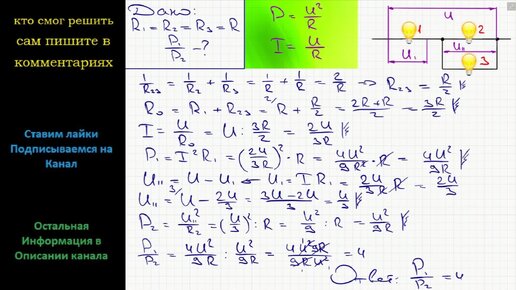 кто смог решить
сам пишите в
комментариях
Ставим лайки
Подписываемся на
Канал
Остальная
Информация в
Описании канала
Дано:
R₁ = R₂ = R₃ = R
P₁/P₂ - ?
P = U²/R
I = U/R
U
1
2
U₁
U₂
3
1/R₂₃ = 1/R₂ + 1/R₃ = 1/R + 1/R = 2/R → R₂₃ = R/2
R₀ = R₁ + R₂₃ = R + R/2 = (2R+R)/2 = 3R/2
I = U/R₀ = U : 3R/2 = 2U/3R
P₁ = I²R₁ = (2U/3R)² · R = 4U²/9R² · R = 4U²/9R
U₁₁ = U - U₁ ← U₁ = I R₁ = 2U/3R · R = 2U/3
U₁₁ = U - 2U/3 = (3U-2U)/3 = U/3
P₂ = U₁₁²/R₂ = (U/3)² : R = U²/9 : R = U²/9R
P₁/P₂ = 4U²/9R : U²/9R = 4U²9R/9RU² = 4
Ответ: P₁/P₂ = 4